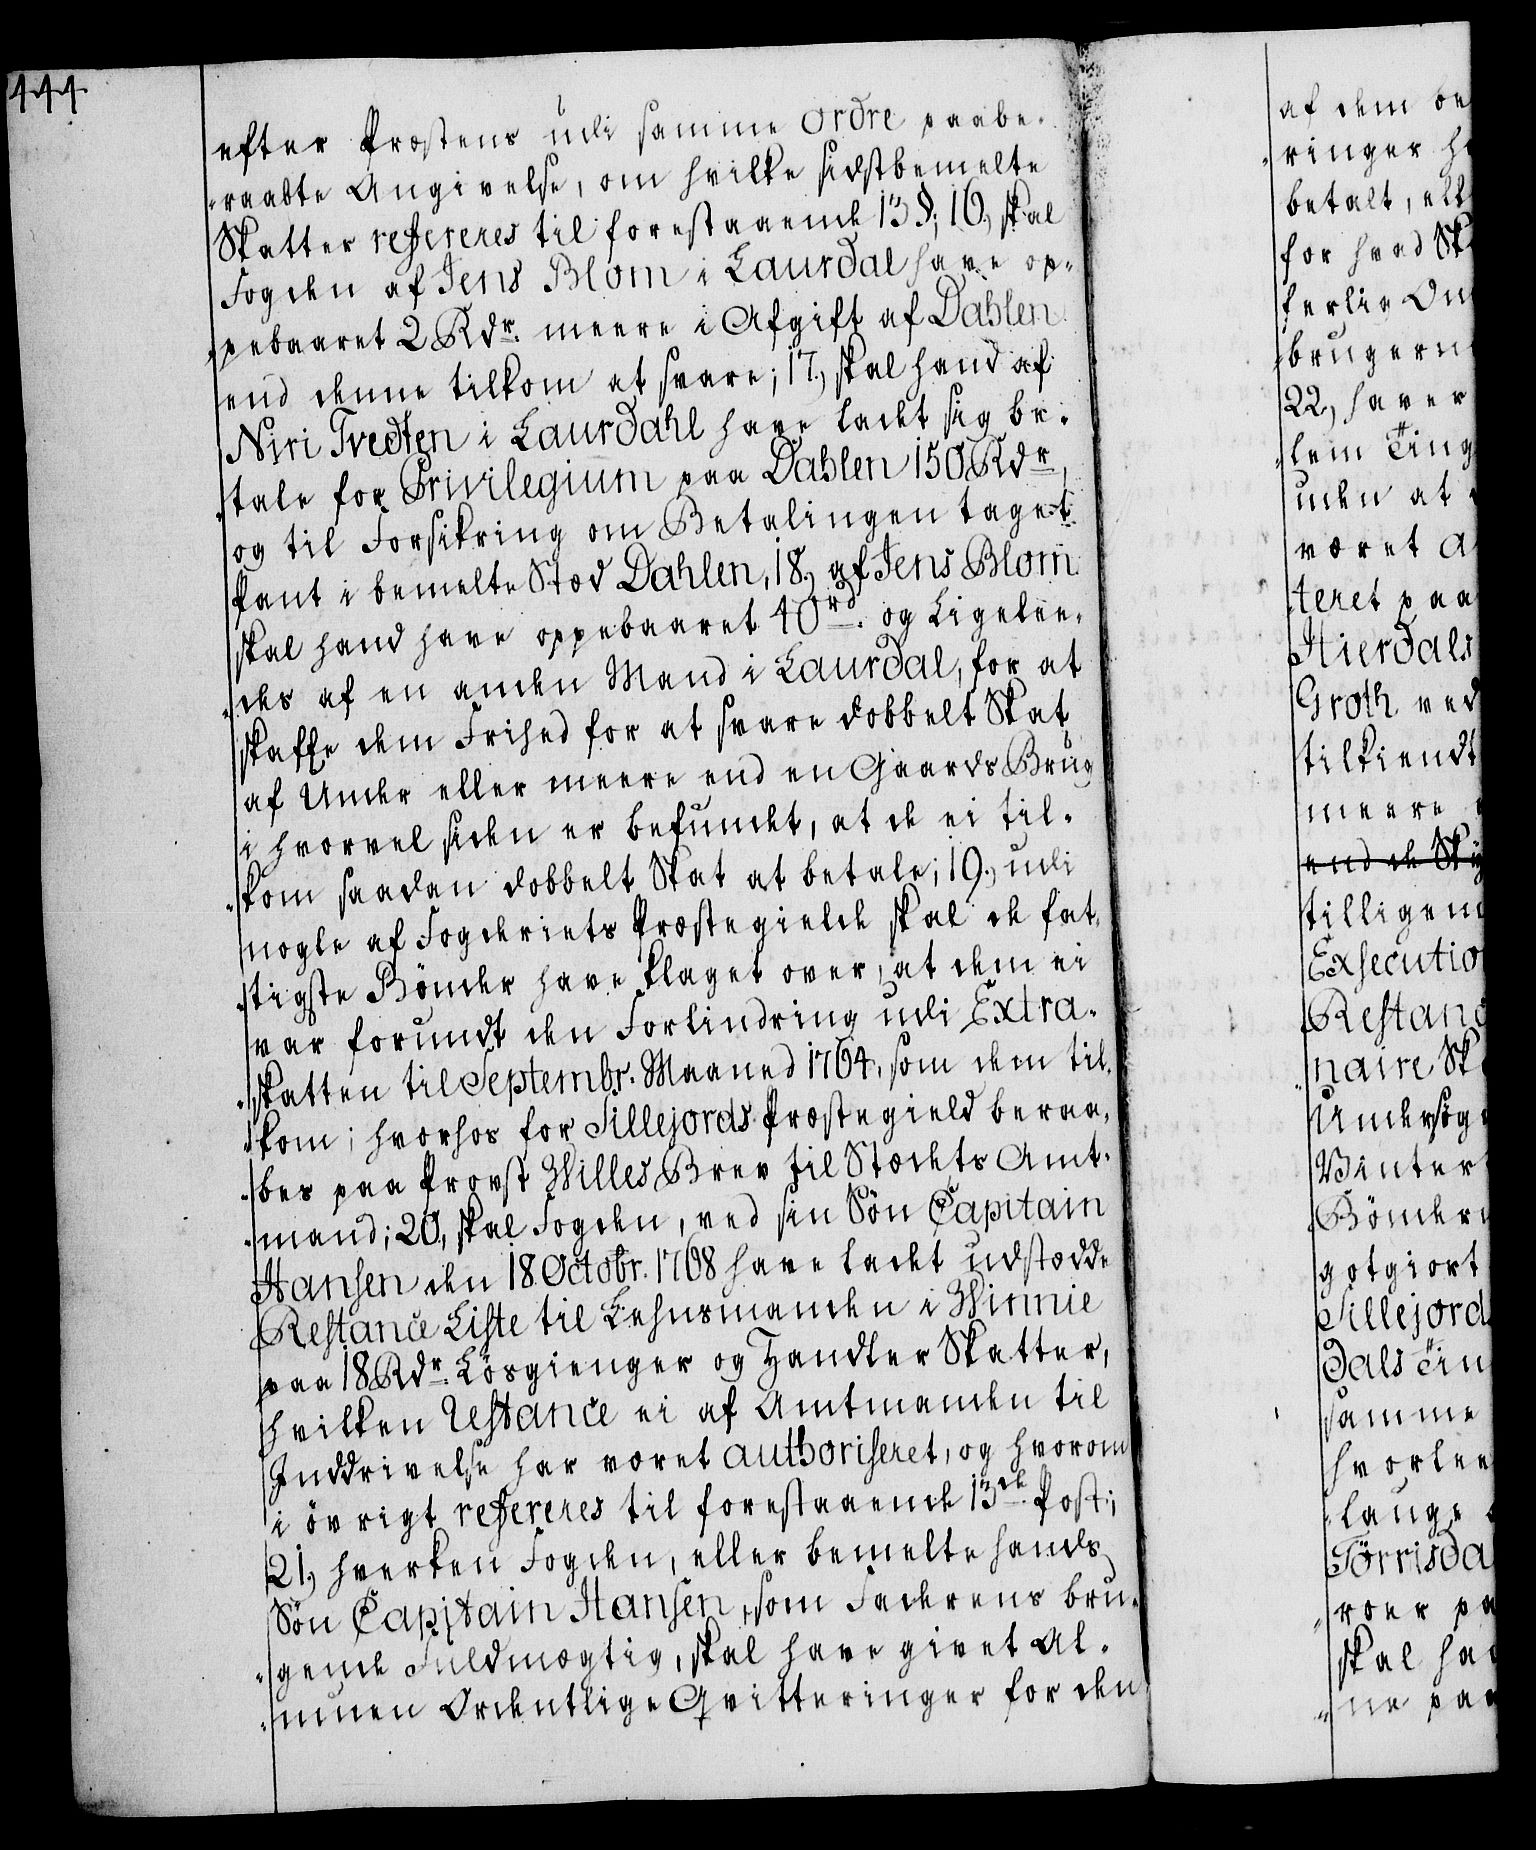 444
efter Præstens udi samme ordre paabe-
raabte Angivelse, om hvilke sidstbemelte
Skatter refereres til forestaaende 13 §; 16, skal
Fogden af Jens Blom i Laurdal have op-
pebaaret 2 Rdr. meere i Afgift af Dahlen
end denne tilkom at svare; 17, skal hand af
Niri Tvedten i Laurdahl have ladet sig be-
tale for Privilegium paa Dahlen 150 Rdr,
og til Forsikring om Betalingen taget
Pant i bemelte Stød Dahlen, 18, af Jens Blom
skal hand have oppebaaret 40 rd. og Ligelee-
des af en anden Mand i Laurdal, for at
skaffe dem Frihed for at svare dobbelt Skat
af Under eller meere end en Gaards Brug
i hvorvel siden er befundet, at de ei til-
kom saadan dobbelt Skat at betale; 19, udi
nogle af Fogderiets Præstegielde skal de fat-
tigste Bønder have klaget over, at dem ei
var forundt den Forlindring udi Extra-
skatten til Septembr. Maaned 1764, som dem til-
kom; hvorhos for Sillejords Præstegield beraa-
bes paa Provst Willes Brev til Stædets Amt-
mand; 20, skal Fogden, ved sin Søn Capitain
Hansen den 18 Octobr. 1768 have ladet udstædde
Restance Liste til Lehnsmanden i Winnie
paa 18 Rdr. Løsgienger og Handler Skatter,
hvilken Restance ei af Amtmanden til
Inddrivelse har været authoriseret, og hvorom
i øvrigt refereres til forestaaende 13de Post;
21, hverken Fogden, eller bemelte hands
Søn Capitain Hansen, som Faderens bru-
gende Fuldmægtig, skal have givet Al-
muen Ordentlige Qvitteringer for den
af dem
ringer
betalt,
for hvad
ferlig
22, haver
lem Ting
uden at
været
teret paa
Hierdals
Groth ved
tilkiendt
meere
end de
Vinter
gotgiort
Sillejord
Dals
samme
skal